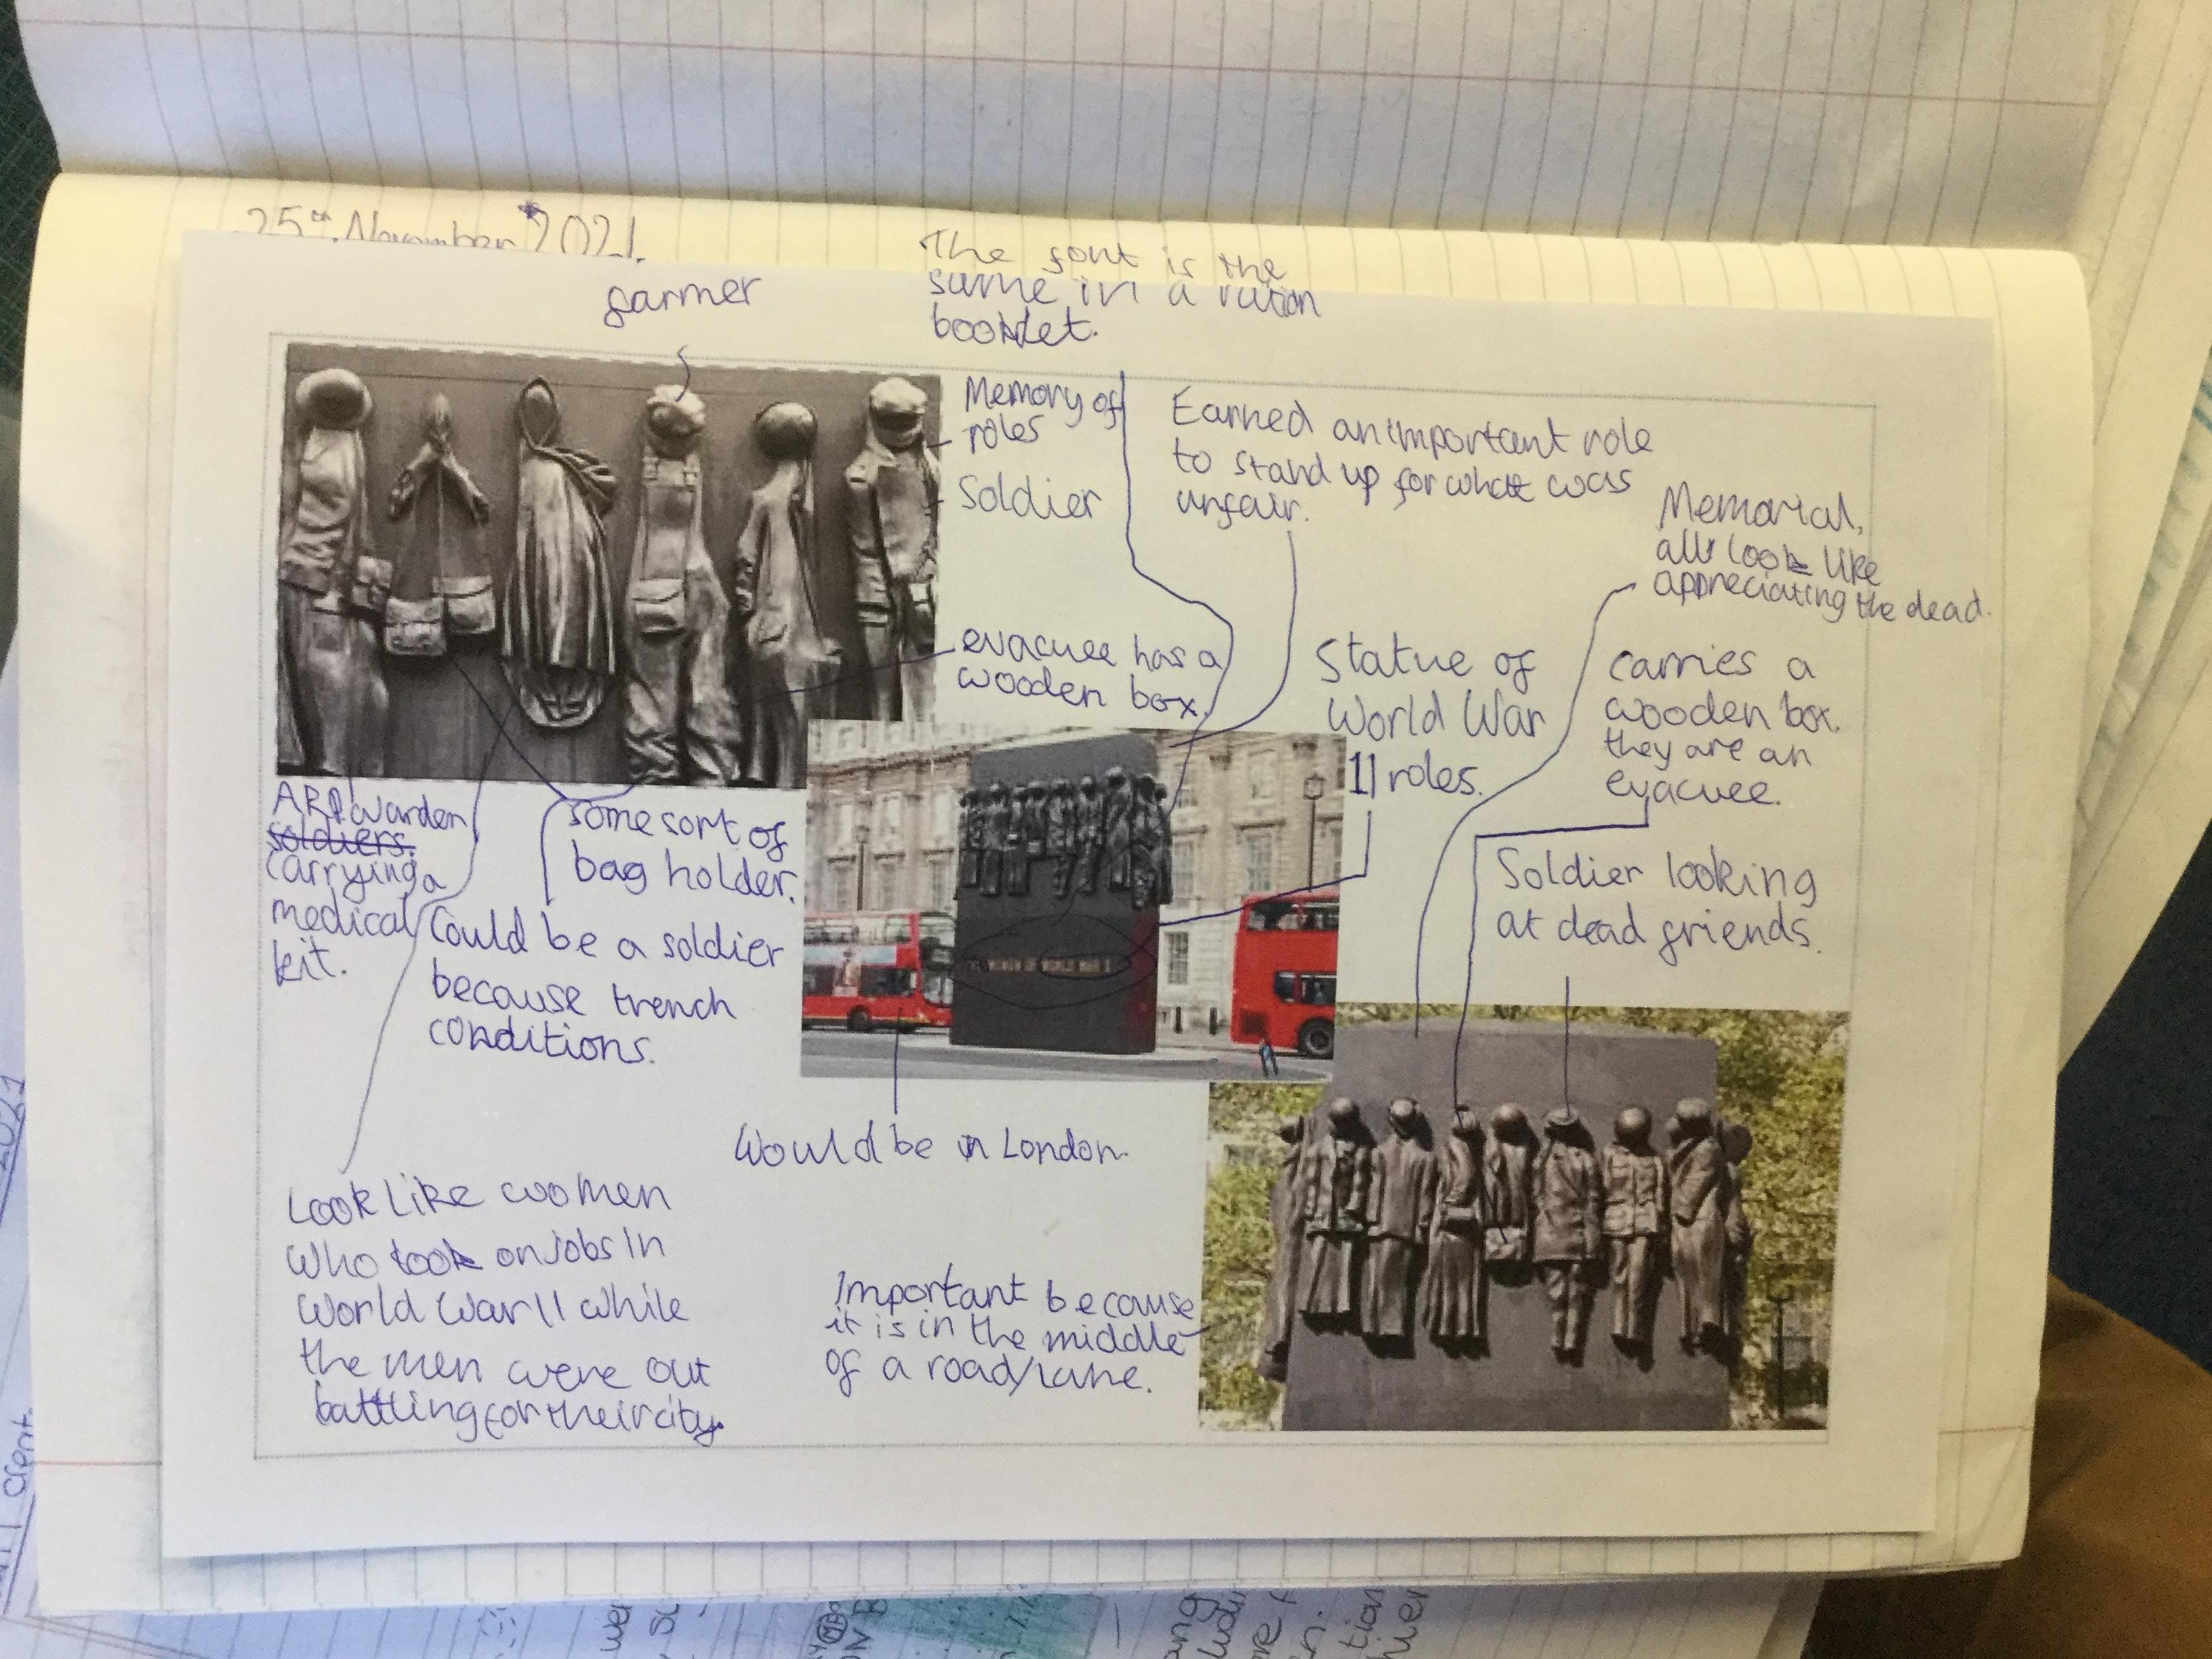 25th November 2021.
farmer
The font is the
same in a ration
booklet.
Memory of
roles
Soldier
Earned an important role
to stand up for what was
unfair.
Memorial,
all look like
appreciating the dead.
evacuee has a
wooden box.
Statue of
World War
11 roles.
carries a
wooden box.
they are an
evacuee.
ARP warden
soldiers.
carrying a
medical
kit.
some sort of
bag holder.
Could be a soldier
because trench
conditions.
Soldier looking
at dead friends.
Would be in London.
Look like women
who took on jobs in
World War 11 while
the men were out
battling for their city.
Important because
it is in the middle
of a road/lane.
2021